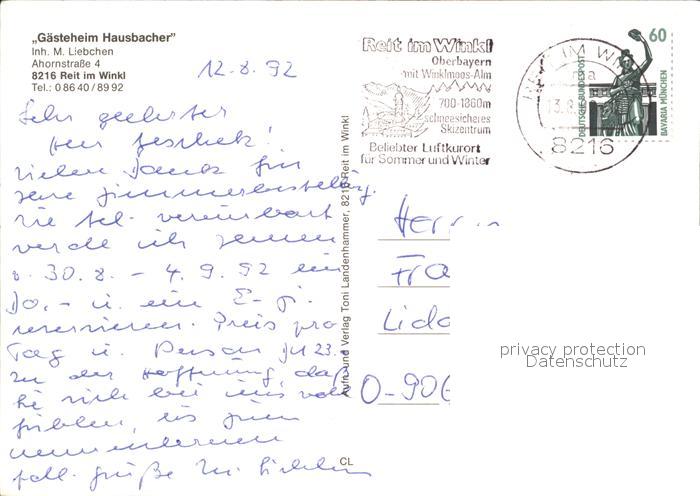 „Gästeheim Hausbacher"
Inh. M. Liebchen
Ahornstraße 4
8216 Reit im Winkl
Tel.: 0 86 40 / 89 92
12.8.92
Sehr geehrter
Herr
vielen Dank für
Zimmerbestellung.
Wie tel. vereinbart
werde ich Ihnen
v. 30.8. – 4.9.92 ein
Do.- u. ein E-Zi.
reservieren. Preis pro
Tag u. Person 23.-
In der Hoffnung, daß
Sie sich bei uns wohl
fühlen, bis zum
grüße
Reit im Winkl
Oberbayern
mit Winklmoos-Alm
700-1860m
schneesicheres
Skizentrum
Beliebter Luftkurort
für Sommer und Winter
REIT IM WINKL
8216
60
DEUTSCHE BUNDESPOST
BAVARIA MÜNCHEN
Aufn. und Verlag Toni Landenhammer, 8216 Reit im Winkl
CL
O-90
privacy protection
Datenschutz